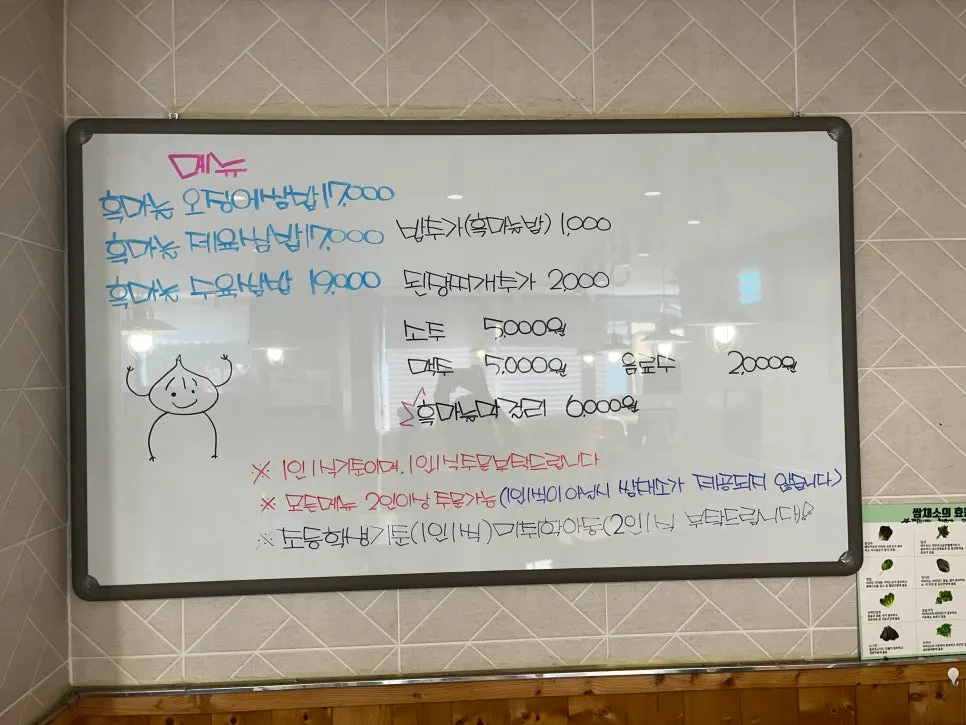 메뉴
흑마늘 오징어쌈밥 17,000
흑마늘 제육쌈밥 17,000
흑마늘 수육쌈밥 19,000
밥추가(흑마늘밥) 1,000
된장찌개추가 2000
소주 5,000원
맥주 5,000원 음료수 2,000원
흑마늘막걸리 6,000원
※ 1인1식기준이며, 1인1식주문부탁드립니다
※ 모든메뉴 2인이상 주문가능 (1인1식이 아닐시 쌈채소가 제공되지 않습니다)
※ 초등학생기준(1인1식) 미취학아동(2인1식 부탁드립니다)
쌈채소의 효